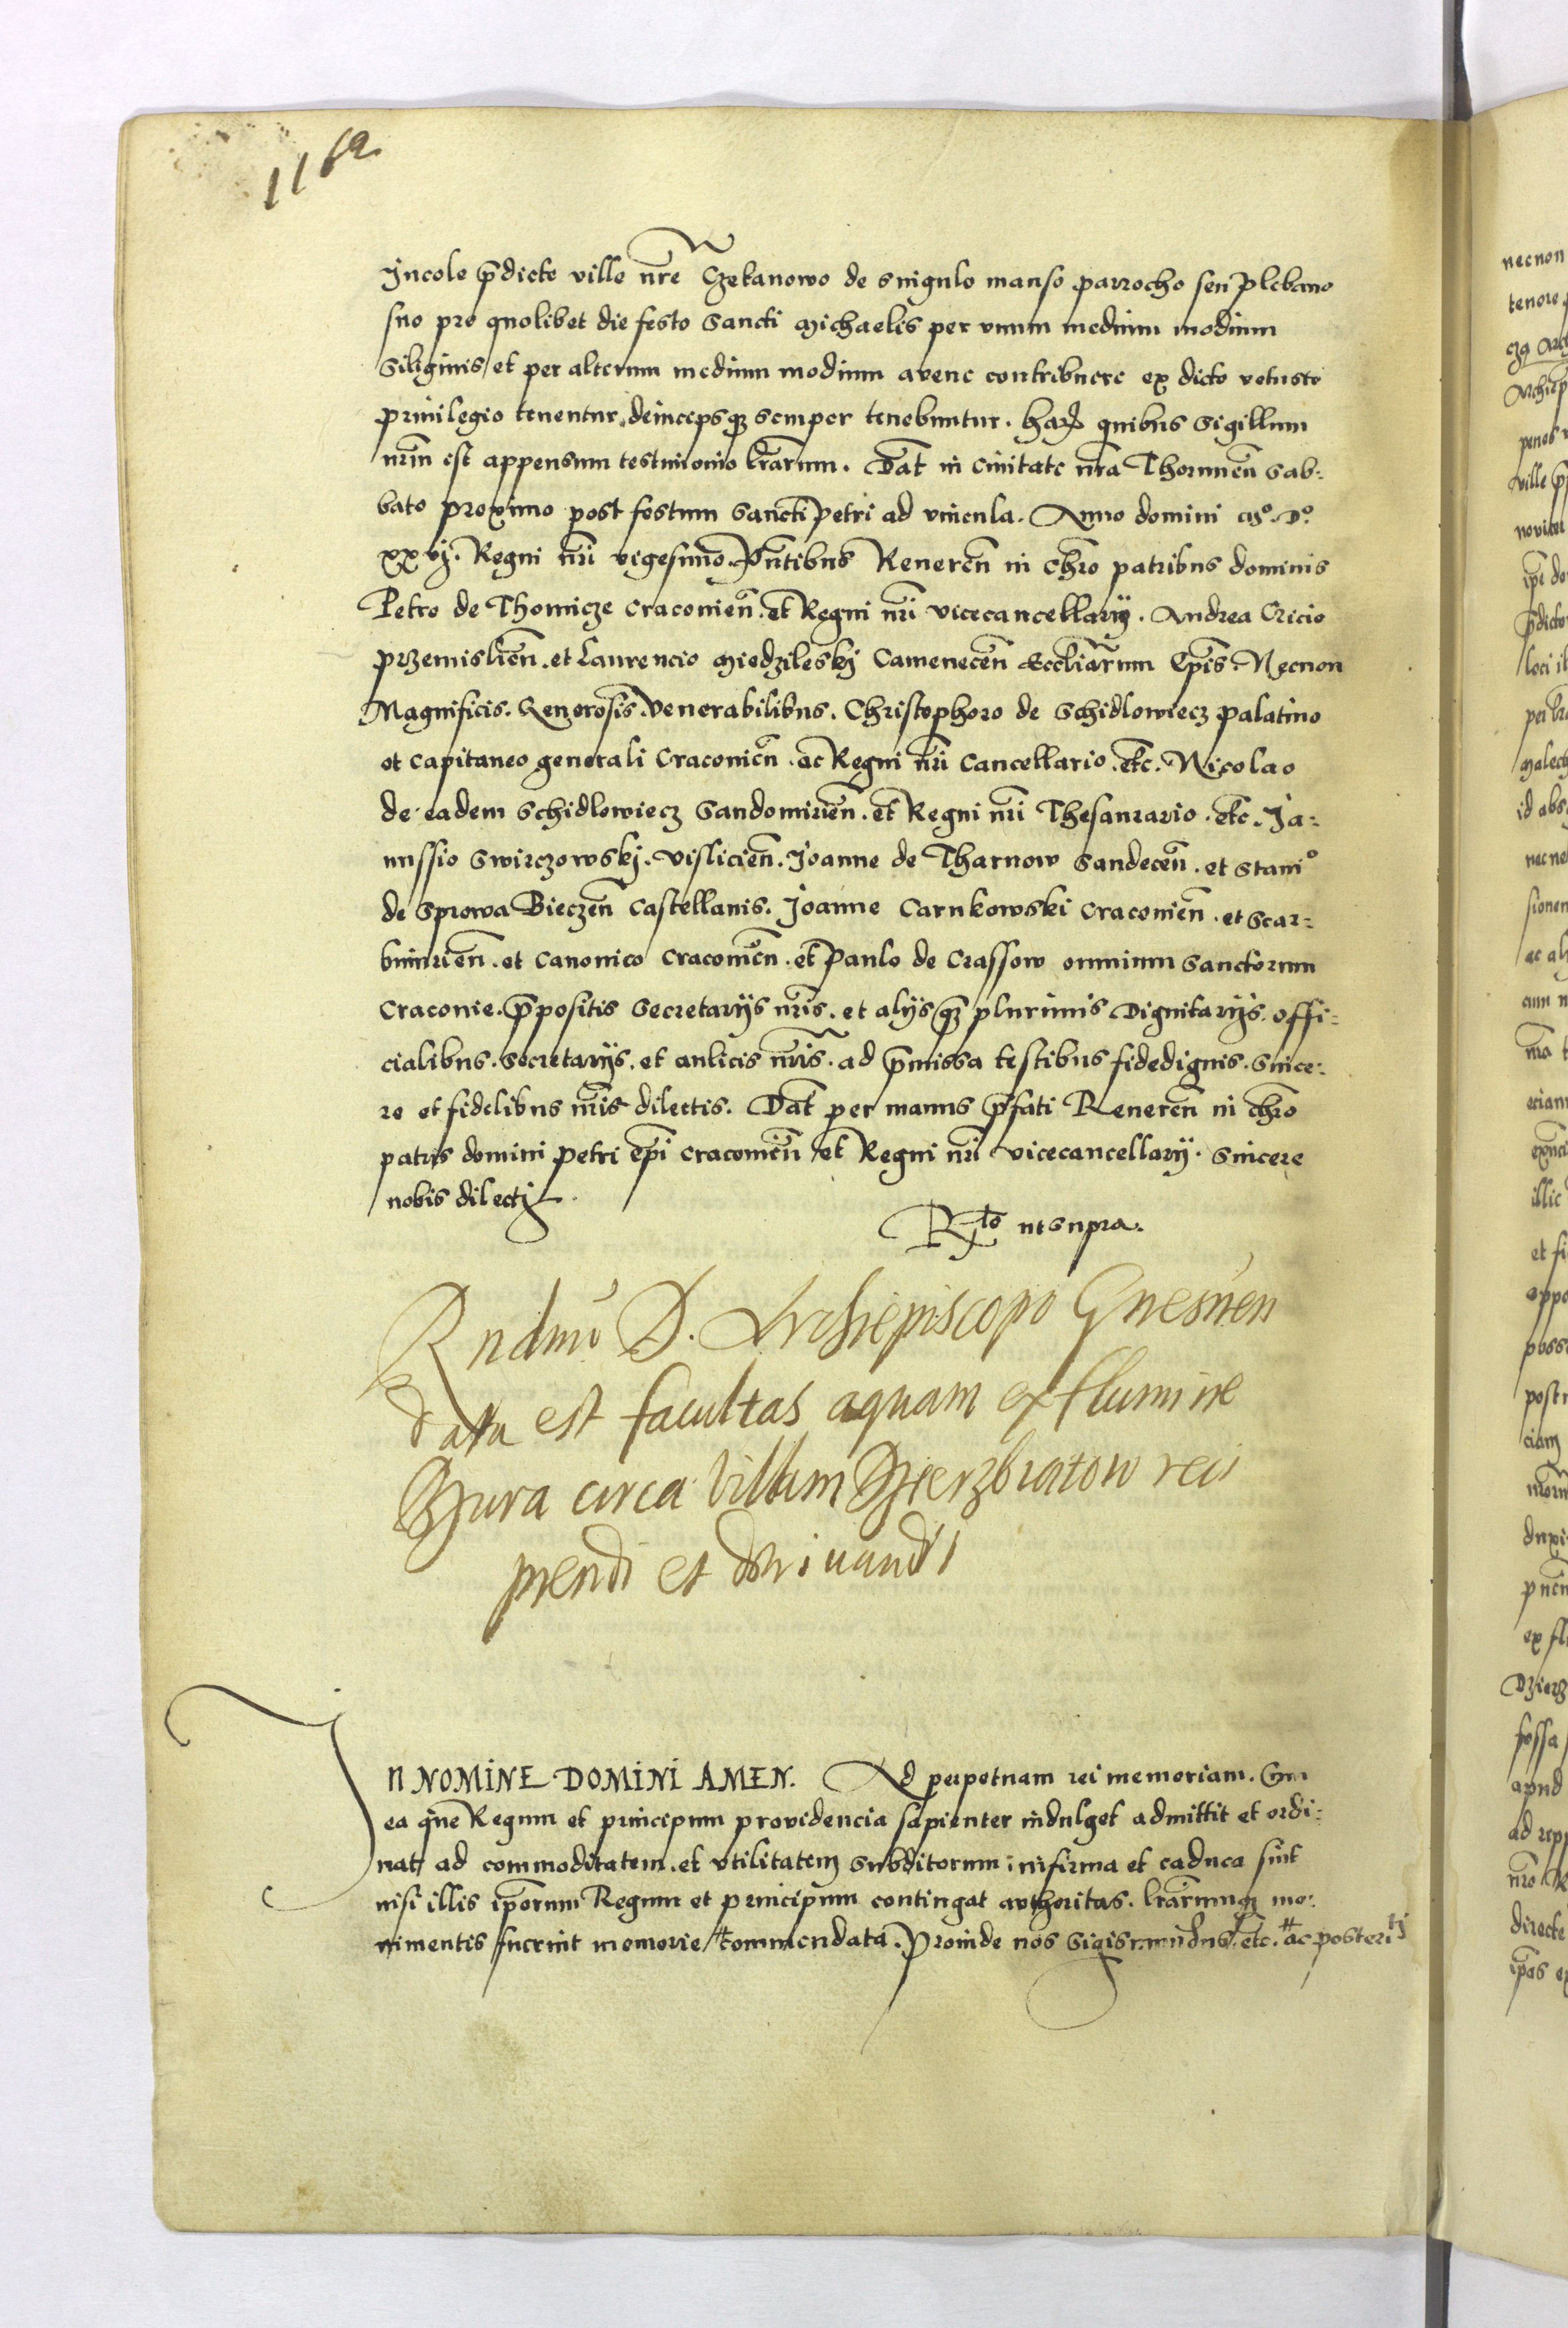 1162
Incole p̄dicte ville nr̃e Czekanowo de singulo manso parrocho seu plebano
suo pro quolibet die festo Sancti Michaelis per vnum medium modium
Siliginis, et per alterum medium modium avene contribuere ex dicto vetusto
priuilegio tenentur, deincepsqz semper tenebuntur. harũ quibus Sigillum
nr̃m est appensum testimonio lr̃arum. Dat̃ in Ciuitate nr̃a Thorunieñ Sab:
bato proximo post festum Sancti Petri ad vincula. Anno domini Mº. Dº.
xxvj. Regni nr̃i vigesimo. Pñtibus Reuereñ in chr̃o patribus dominis
Petro de Thomicze Cracouieñ. et Regni nr̃i vicecancellarij. Andrea Cricio
Przemislieñ. et Laurencio Miedzileskj Cameneceñ Eccliãrum Ep̃is. Necnon
Magnificis. Generosis. Venerabilibus. Christophoro de Schidlowiecz palatino
et Capitaneo generali Cracouieñ. ac Regni nr̃i Cancellario. etc. Nicolao
de eadem Schidlowiecz Sandomirieñ. et Regni nr̃i Thesaurario. etc. Ja:
nussio Swirczowskj. Vislicieñ. Joanne de Tharnow Sandeceñ. et Stanº
de Sprowa Bieczeñ Castellanis. Joanne Carnkowski Cracouieñ. et Scar:
bimirieñ. et Canonico Cracouieñ. et Paulo de Crassow omnium Sanctorum
Cracouie. p̄positis Secretarijs nr̃is. et alijs qz plurimis Dignitarijs. offi:
cialibus. Secretarijs. et aulicis nr̃is. ad p̄missa testibus fidedignis. Since:
re et fidelibus nr̃is dilectis. Dat̃ per manus p̄fati Reuereñ in chr̃o
patris domini Petri ep̃i Cracouieñ et Regni nr̃i vicecancellarij. Sincere
nobis dilecti
R̃to ut supra.
Rndmo D. Archiepiscopo Gnesnen
data est facultas aquam ex flumine
Bzura circa villam Dzierzbiatow reci
piendi et deriuandi
In NOMINE DOMINI AMEN. Ad perpetuam rei memoriam. Cum
ea que Regum et principum providencia sapienter indulget admittit et ordi:
nat, ad commoditatem. et vtilitatem Subditorum infirma et caduca sint
nisi illis ip̃orum Regum et principum contingat authoritas. lr̃arumqz mo:
nimentis fuerint memorie commendata. Proinde nos Sigismundus. etc. ac posterit